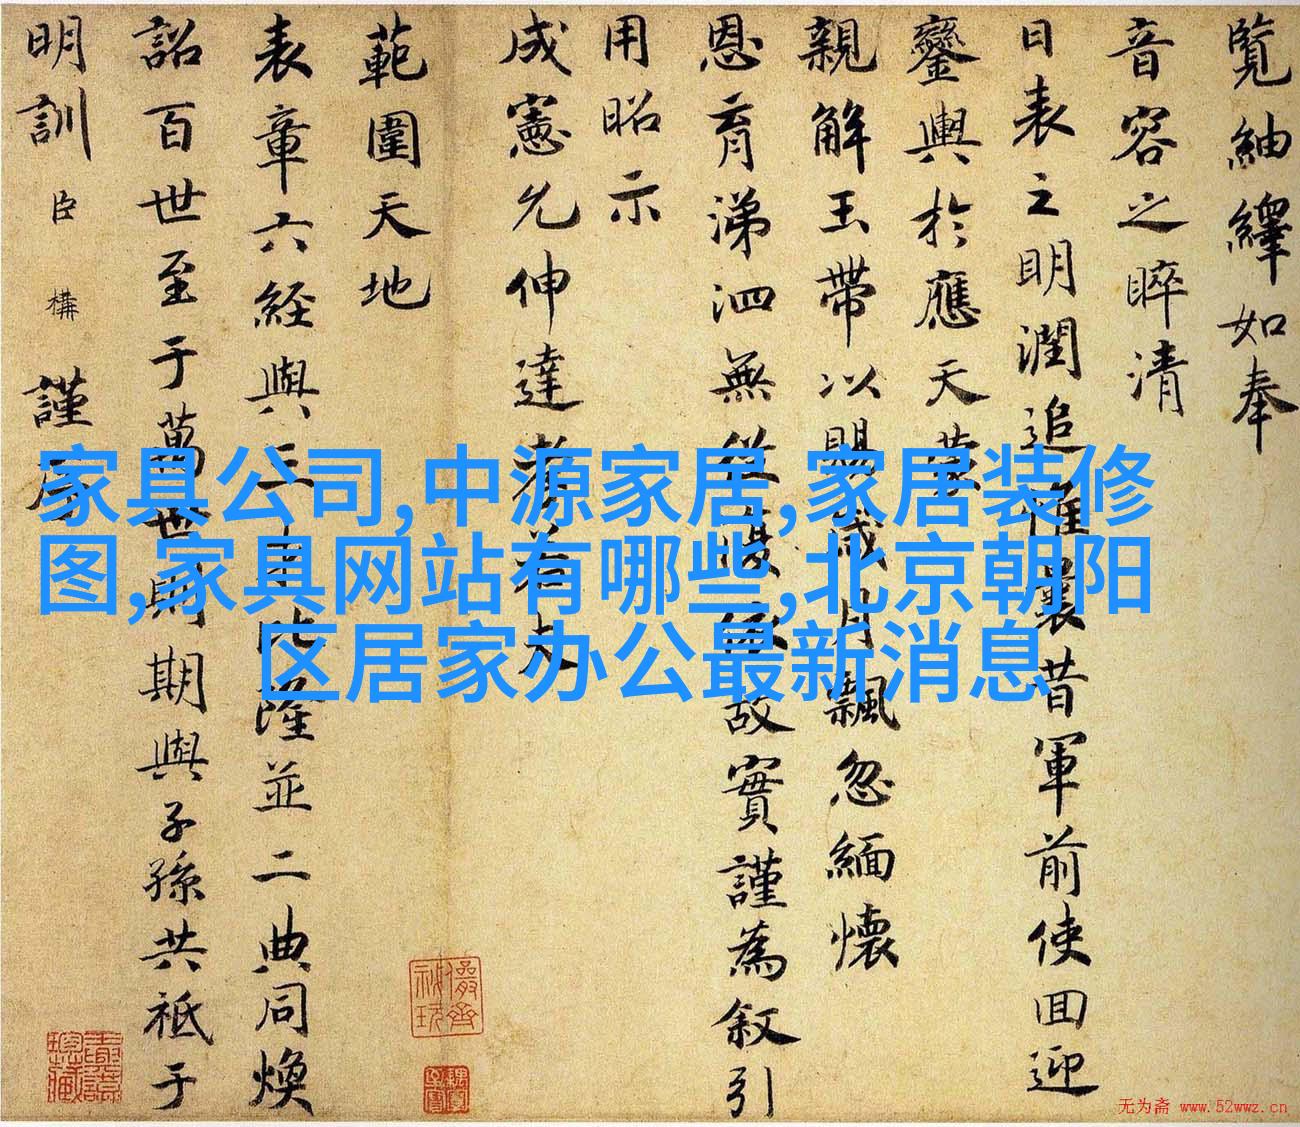 覽紬繹如奉
音容之睟清
日表之明潤追惟曩昔軍前使回迎
鑾輿於應天蒙
親解玉帶以賜歲月飄忽緬懷
恩育涕泗無從謾依故實謹為叙引
用昭示
成憲允伸達孝若夫
範圍天地
表章六經與三
隆並二典同煥
詔百世至于萬世則期與子孫共祗于
明訓臣構謹序
家具公司,中源家居,家居装修
图,家具网站有哪些,北京朝阳
区居家办公最新消息
无为斋 www.52wwz.cn